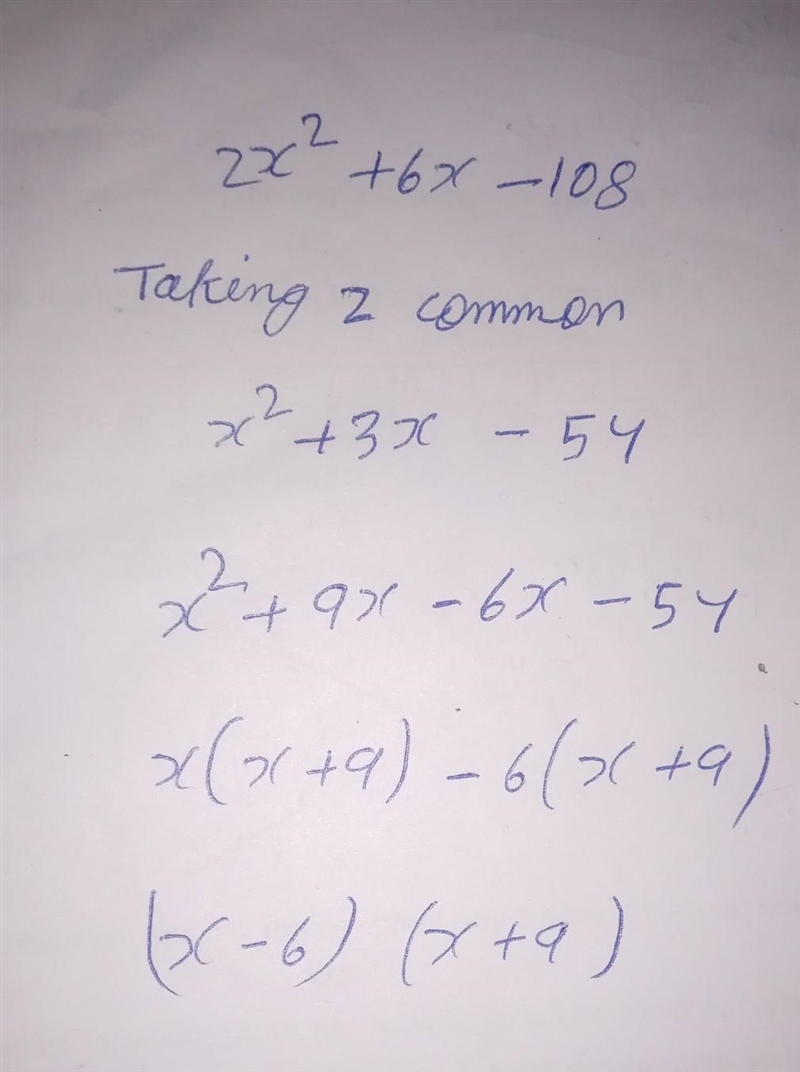 2x² + 6x - 108
Taking 2 common
x² + 3x - 54
x² + 9x - 6x - 54
x(x + 9) - 6(x + 9)
(x - 6) (x + 9)